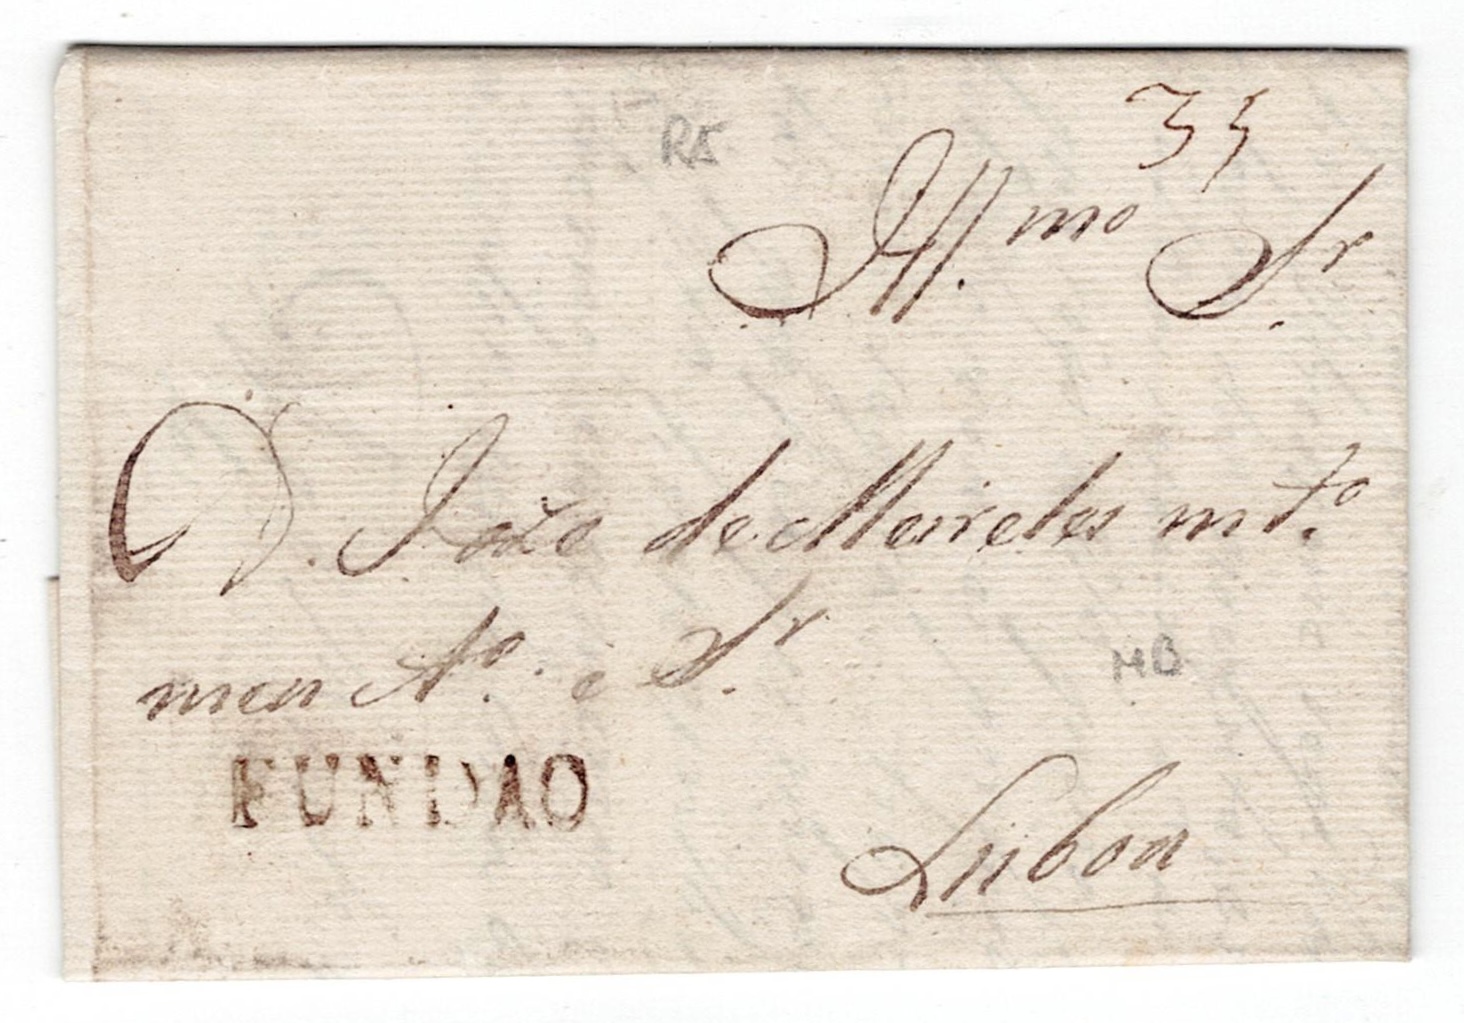 35
R5
Ill.mo Sr.
D. João de Meireles mto.
meu Ao. e Sr.
MB
FUNDAO
Lisboa